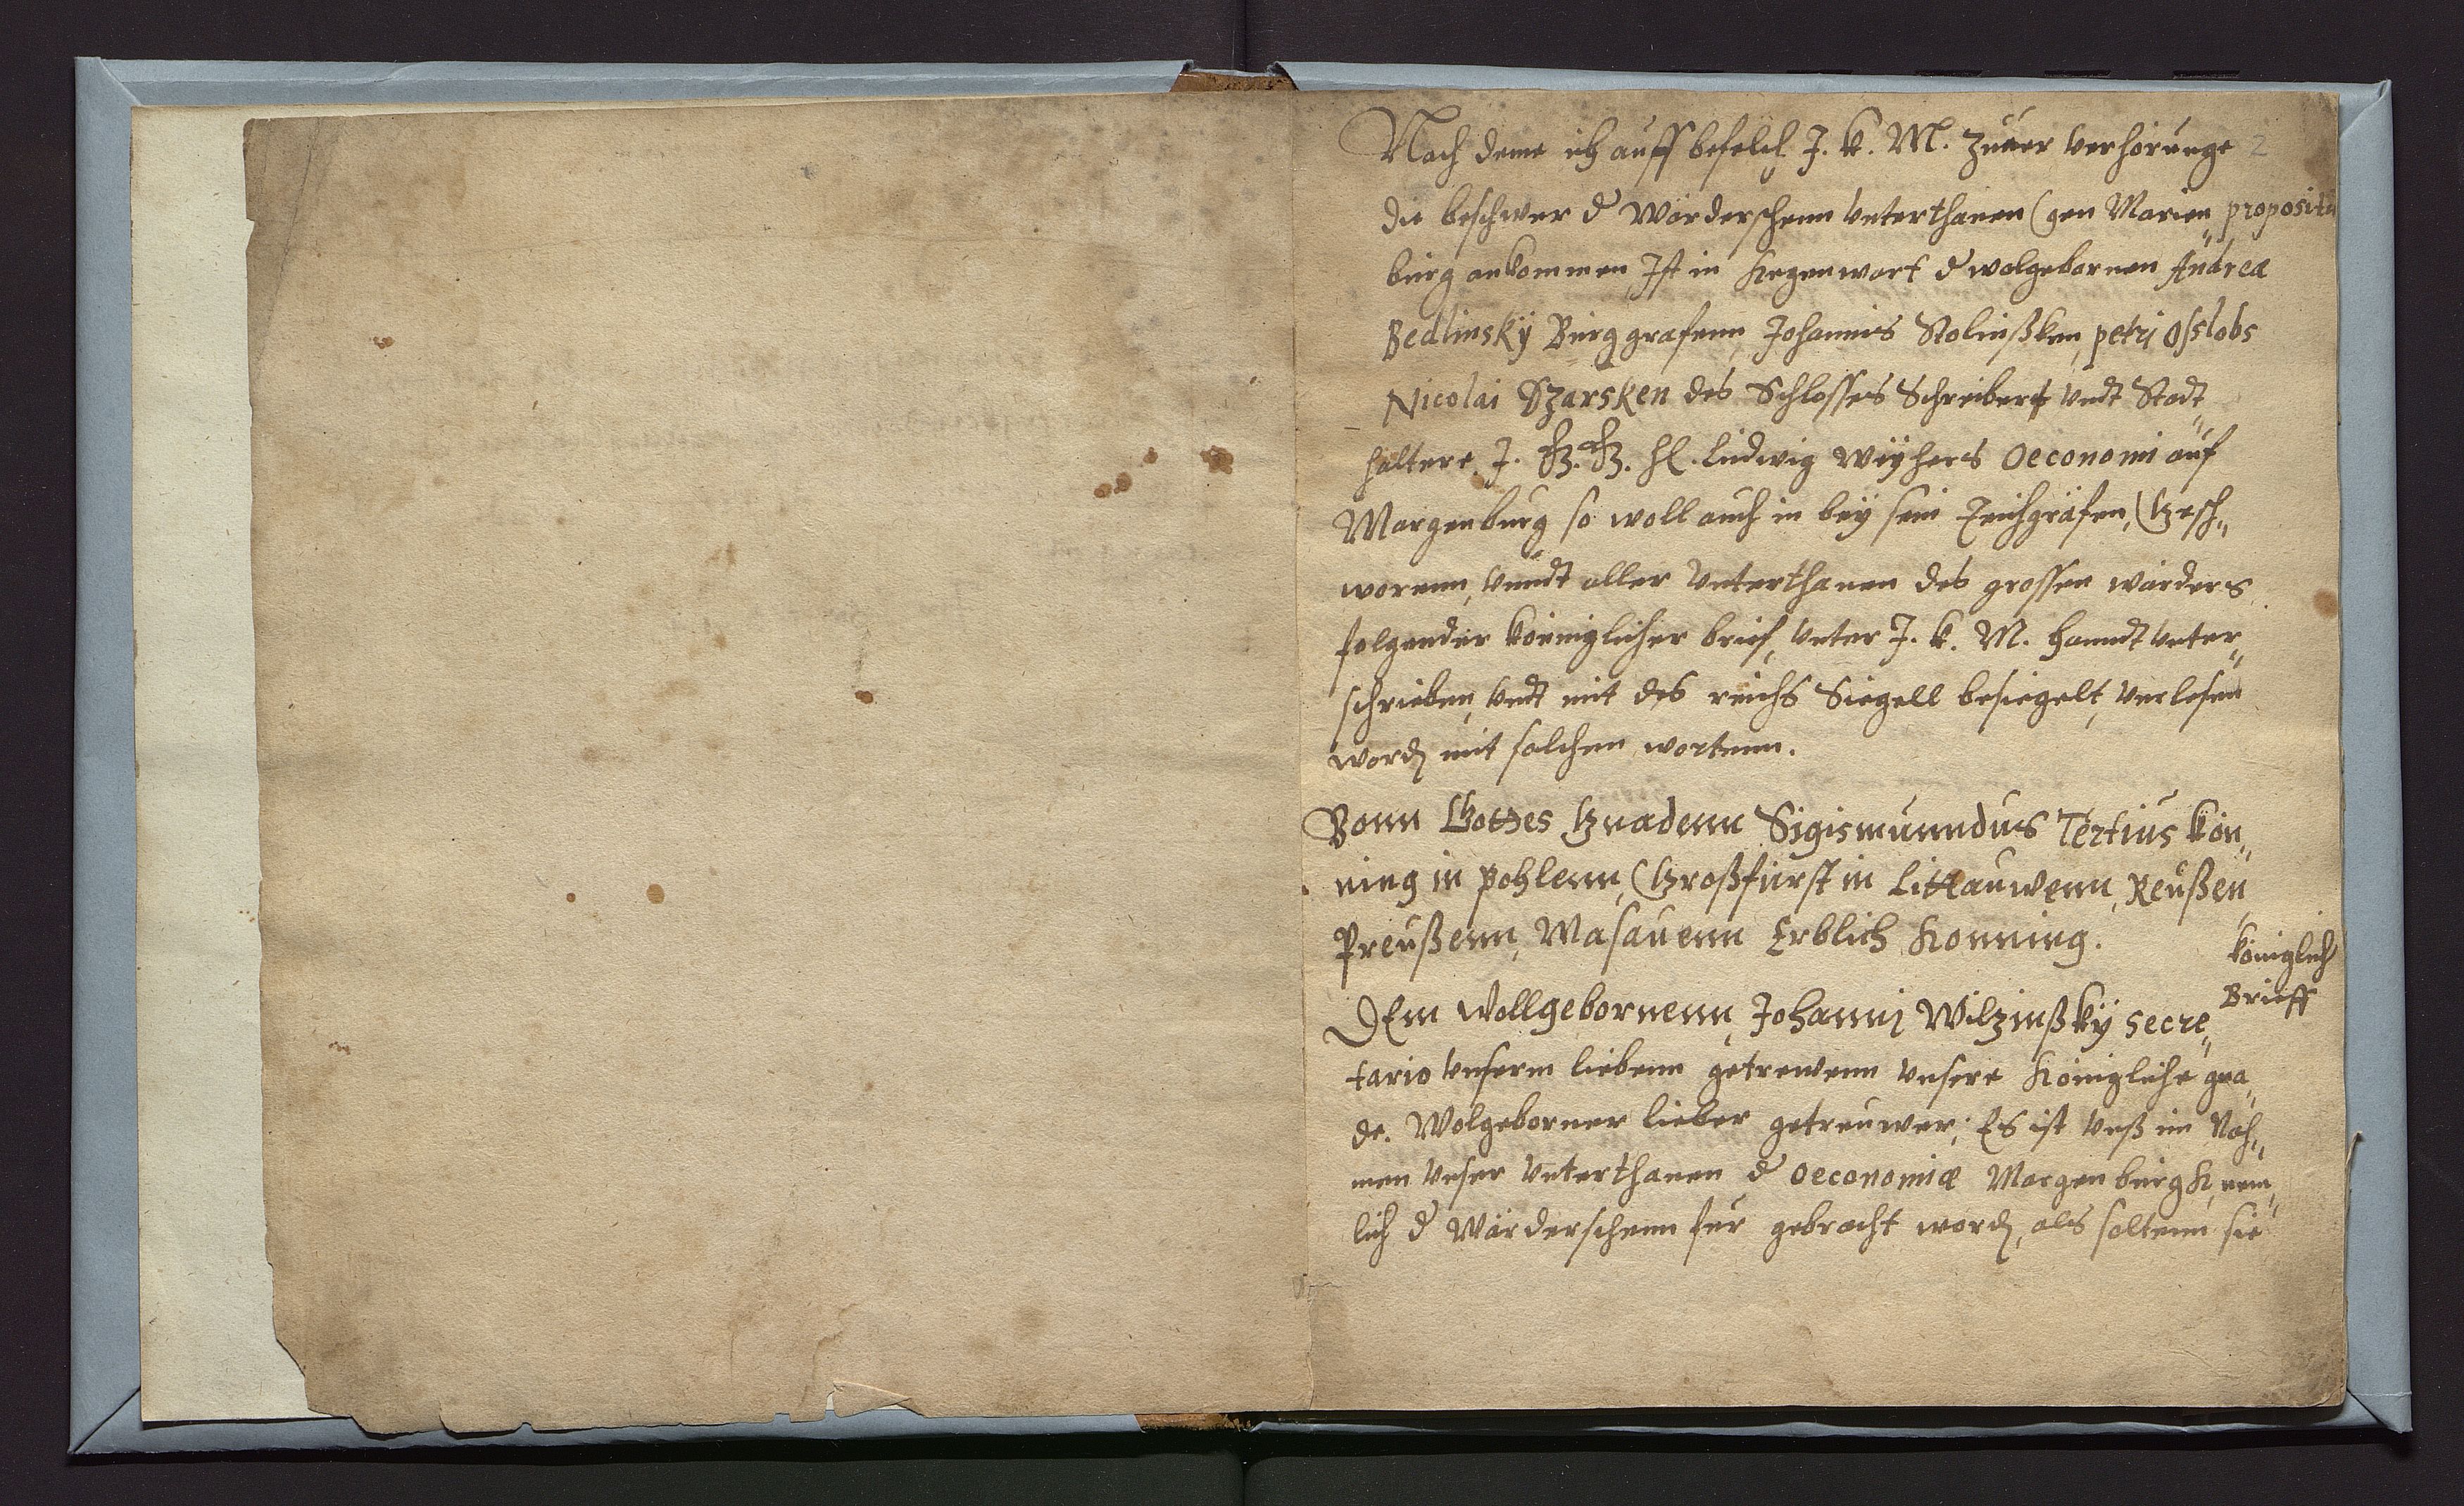 Nach deme ich auff befelch J. k. M. zuuer verhörunge 2
die beschwer d Wärderschenn vnterthanen gen Marien„ proposit
burg ankommen, Ist in kegenwart d wolgebornen Andreæ
Bedlinskÿ Burggrafenn, Johannis Stolinßken, petri Osslobs
Nicolai Szarsken des Schlosses Schreiber vndt Stadt„
haltere J. G. G. H. Ludwig Weÿhers Oeconomi auf
Margenburg so woll auch in beÿ sein Teichgräfen, Gesch„
worenn, vnndt aller vnterthanen des grossen wärders
folgender königlicher brief, vnter J. k. M. handt vnter„
schrieben, vndt mit des reichs Siegell besiegelt, verlesen
word mit solchen wortenn.
Vonn Gottes Gnadenn Sigismunndus Tertius kön„
ning in Pohlenn, Großfürst in Littauwenn, Reußen
Preußenn, Masauenn Erblich Konning.
königlich
Brieff
DEm Wollgebornenn, Johanni Wilzinßkÿ Secre„
tario vnserm liebenn getrewenn vnsere Königliche gna„
de. Wolgeborner lieber getreuwer; Es ist vnß im Nah„
men vnser vnterthanen d oeconomiæ Margenburgk, nem„
lich d Wärderschenn für gebracht word, als soltenn sie